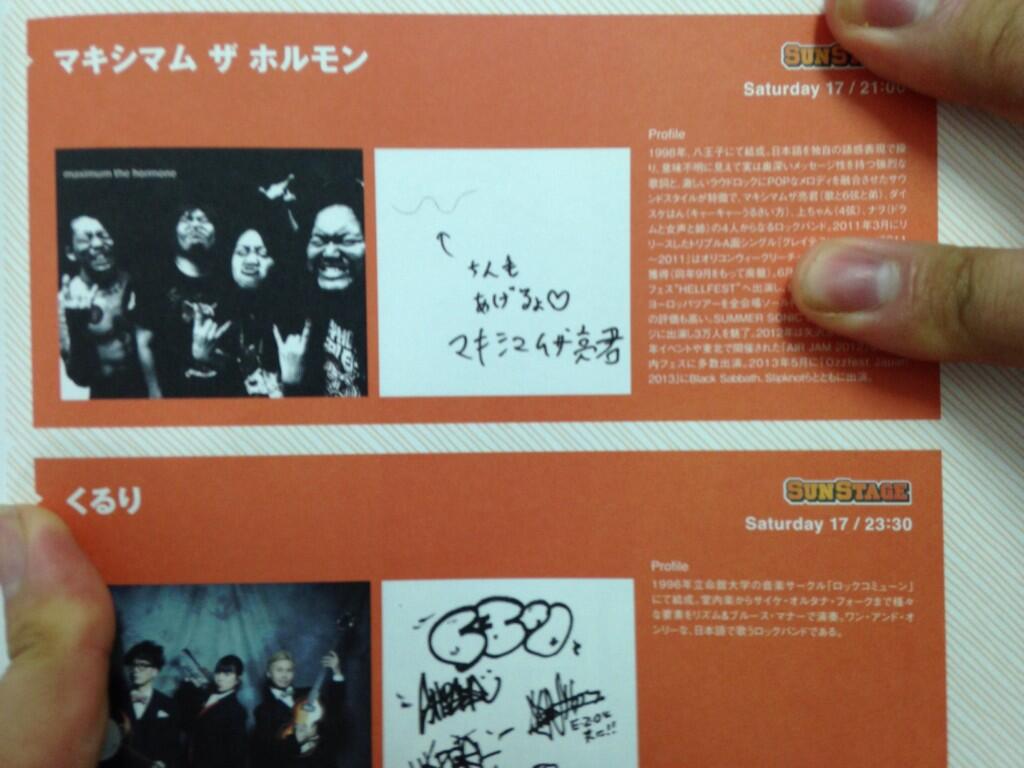 マキシマム ザ ホルモン
SUNS
Saturday 17 / 21:00
maximum the hormone
ちん毛
あげるよ♡
マキシマムザ亮君
Profile
1998年、八王子にて結成。日本語を独自の語感表現で操
り、意味不明に見えて実は奥深いメッセージ性を持つ強烈な
歌詞と、激しいラウドロックにPOPなメロディを融合させたサウ
ンドスタイルが特徴で、マキシマムザ亮君（歌と6弦と弟）、ダイ
スケはん（キャーキャーうるさい方）、上ちゃん（4弦）、ナヲ（ドラ
ムと女声と姉）の4人からなるロックバンド。2011年3月にリ
リースしたトリプルA面シングル「グレイテス
～2011」はオリコンウィークリーチ
獲得（同年9月をもって廃盤）。6月
フェス"HELLFEST"へ出演し、
ヨーロッパツアーを全会場ソール
の評価も高い。SUMMER SONIC
ジに出演し3万人を魅了。2012年は
年イベントや東北で開催された「AIR JAM 2012」
内フェスに多数出演。2013年5月に「Ozzfest Japan
2013」にBlack Sabbath、Slipknotらとともに出演。
くるり
SUNSTAGE
Saturday 17 / 23:30
くるり
E-ZOE
Profile
1996年立命館大学の音楽サークル「ロックコミューン」
にて結成。室内楽からサイケ・オルタナ・フォークまで様々
な要素をリズム&ブルース・マナーで演奏。ワン・アンド・オ
ンリーな、日本語で歌うロックバンドである。